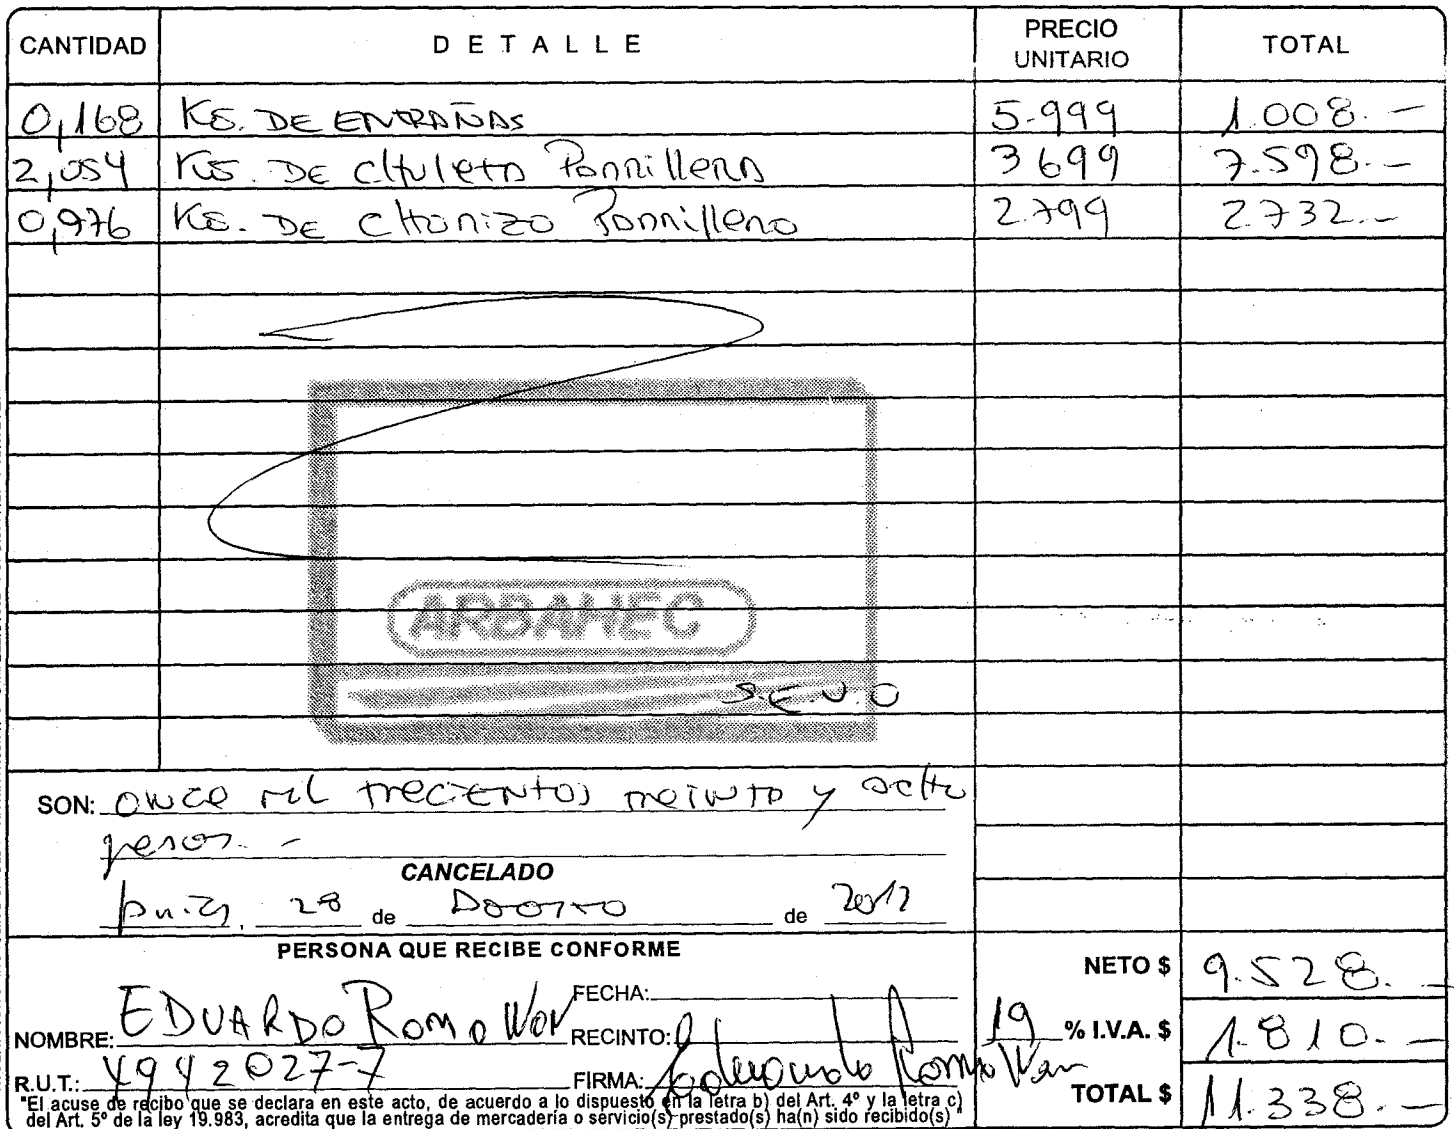 CANTIDAD DETALLE PRECIO UNITARIO TOTAL
0,168 KG. DE ENTRAÑAS 5.999 1.008.-
2,054 KG. DE CHULETA Parrillera 3699 7.598.-
0,976 KG. DE CHORIZO Parrillero 2.799 2.732.-
ARBAHEC
S.E.U.O
SON: ONCE MIL TRECIENTOS TREINTA Y OCHO
pesos.-
CANCELADO
28 de AGOSTO de 2012
PERSONA QUE RECIBE CONFORME
NETO $ 9.528.-
NOMBRE: EDUARDO ROMO FECHA:
RECINTO: 19 % I.V.A. $ 1.810.-
R.U.T.: 4942027-7 FIRMA: Eduardo Romo
TOTAL $ 11.338.-
"El acuse de recibo que se declara en este acto, de acuerdo a lo dispuesto en la letra b) del Art. 4º y la letra c)
del Art. 5º de la ley 19.983, acredita que la entrega de mercadería o servicio(s) prestado(s) ha(n) sido recibido(s)"